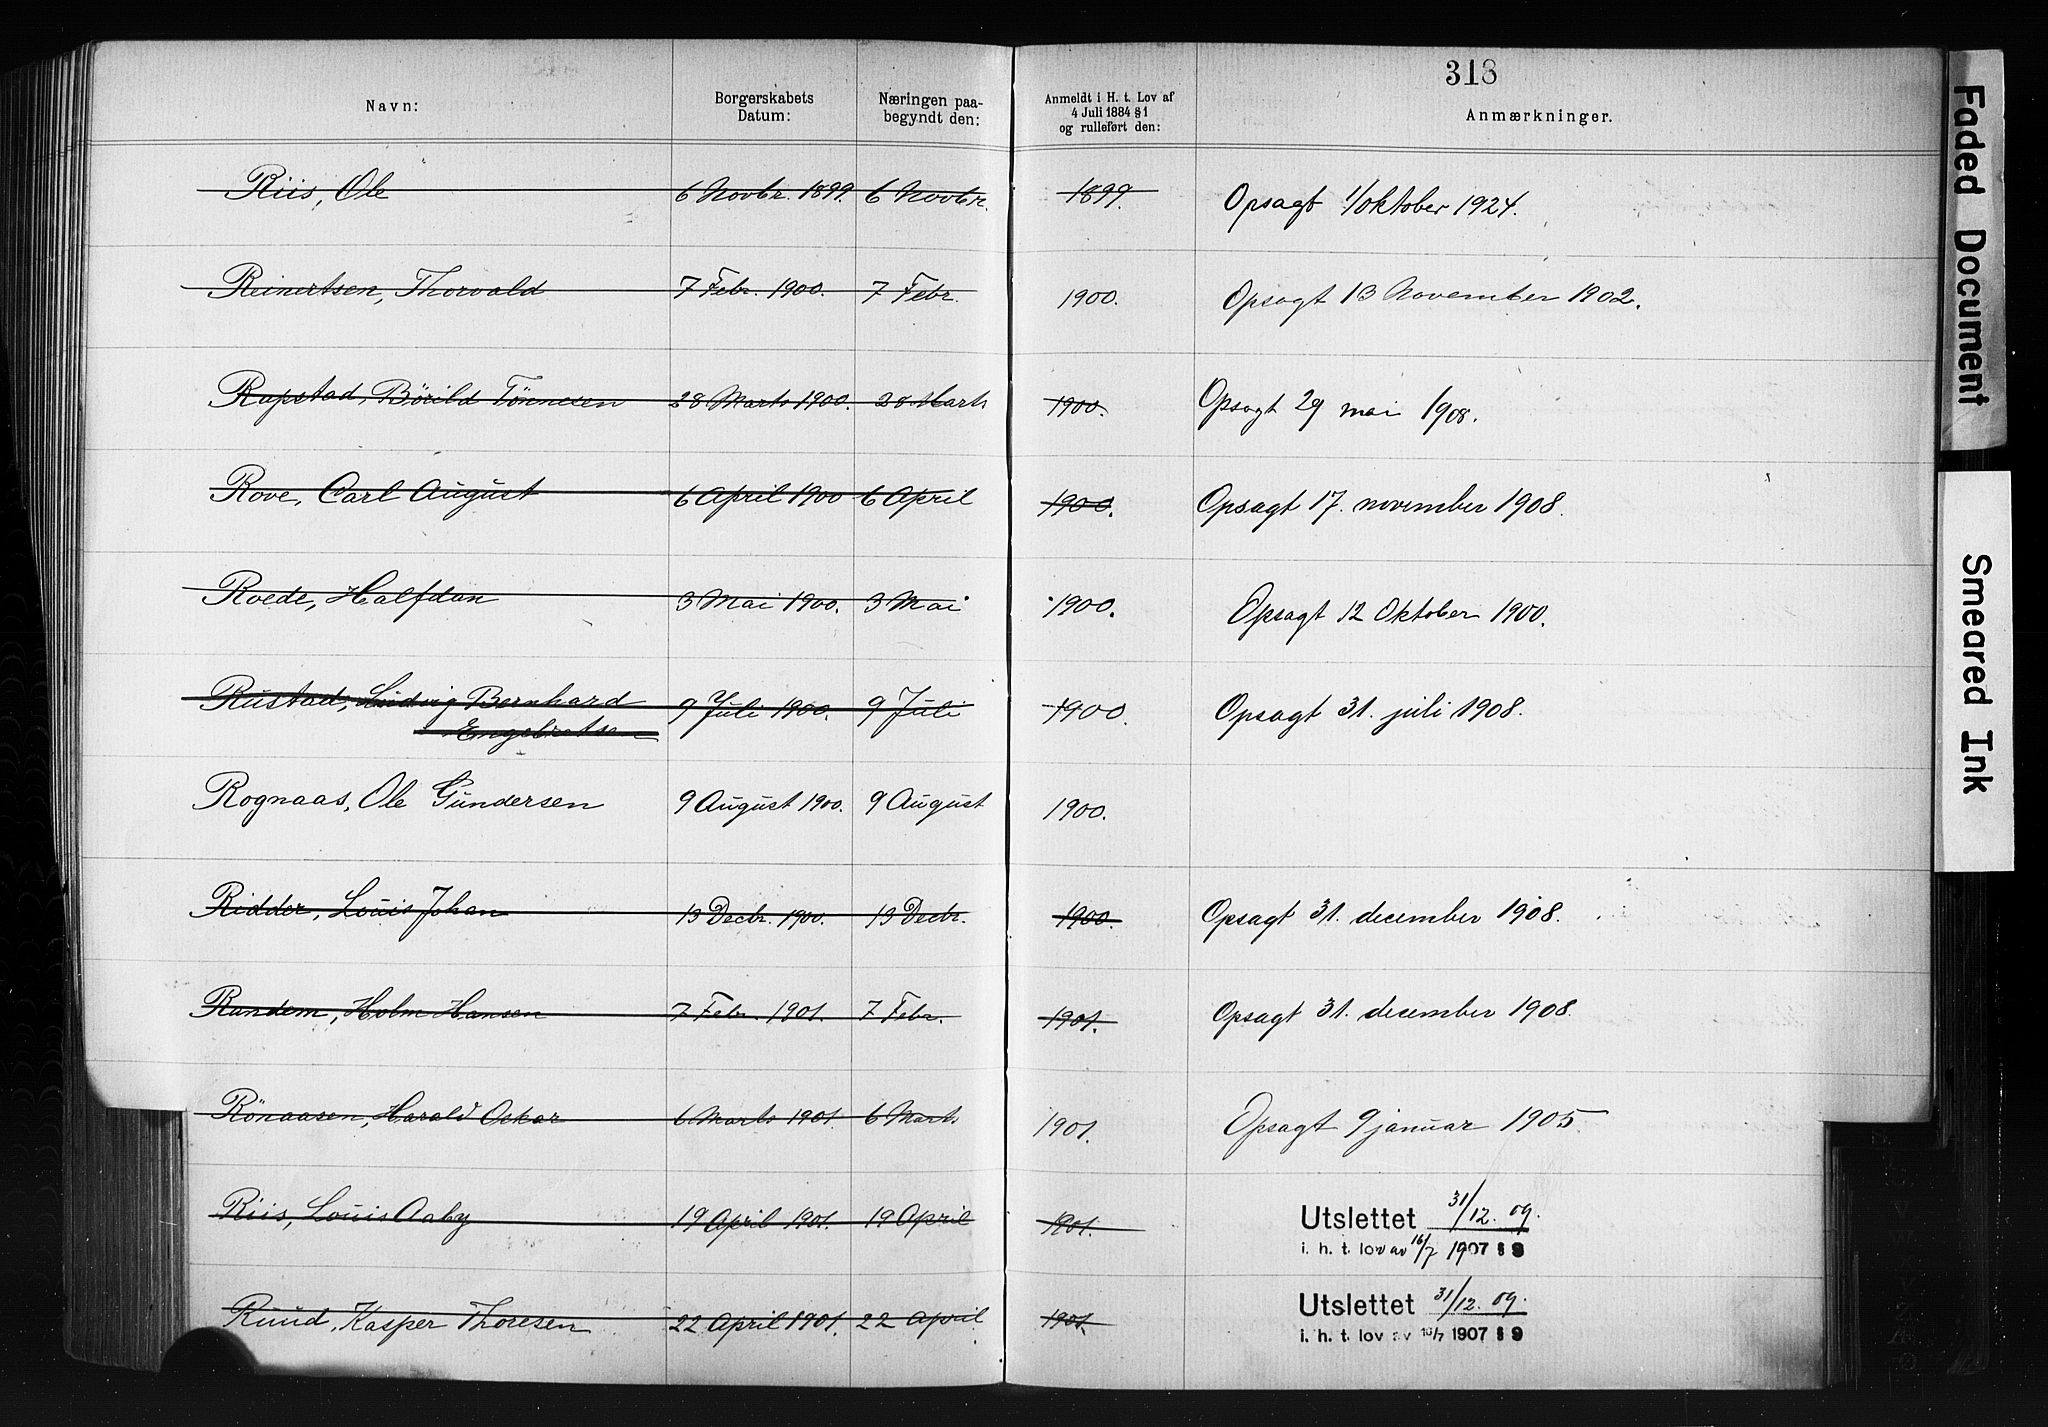 318
Navn: Borgerskabets Datum: Næringen paa-begyndt den: Anmeldt i H. t. Lov af 4 Juli 1884 § 1 og rulleført den: Anmærkninger.
Riis, Ole 6 Novbr. 1899. 6 Novbr. 1899. Opsagt 1/oktober 1924.
Reinertsen, Thorvald 7 Febr. 1900. 7 Febr. 1900. Opsagt 13 November 1902.
Rapstad, Börild Tönnesen 28 Marts 1900. 28 Marts 1900. Opsagt 29 mai 1908.
Rove, Carl August 6 April 1900 6 April 1900. Opsagt 17. november 1908.
Roede, Halfdan 3 Mai 1900. 3 Mai 1900. Opsagt 12 Oktober 1900.
Rustad, Ludvig Bernhard 9 Juli 1900. 9 Juli 1900. Opsagt 31. juli 1908.
Engebretsen
Rognaas, Ole Gundersen 9 August 1900. 9 August 1900.
Ridder, Louis Johan 13 Decbr. 1900. 13 Decbr. 1900. Opsagt 31. december 1908.
Randem, Holm Hansen 7 Febr. 1901. 7 Febr. 1901. Opsagt 31. december 1908.
Rönaasen, Harald Oskar 6 Marts 1901. 6 Marts 1901. Opsagt 9 januar 1905.
Riis, Louis Aaby 19 April 1901. 19 April 1901. Utslettet 31/12. 09.
i. h. t. lov av 16/7 1907 § 9
Ruud, Kasper Thoresen 22 April 1901. 22 April 1901. Utslettet 31/12. 09.
i. h. t. lov av 16/7 1907 § 9
Faded Document
Smeared Ink